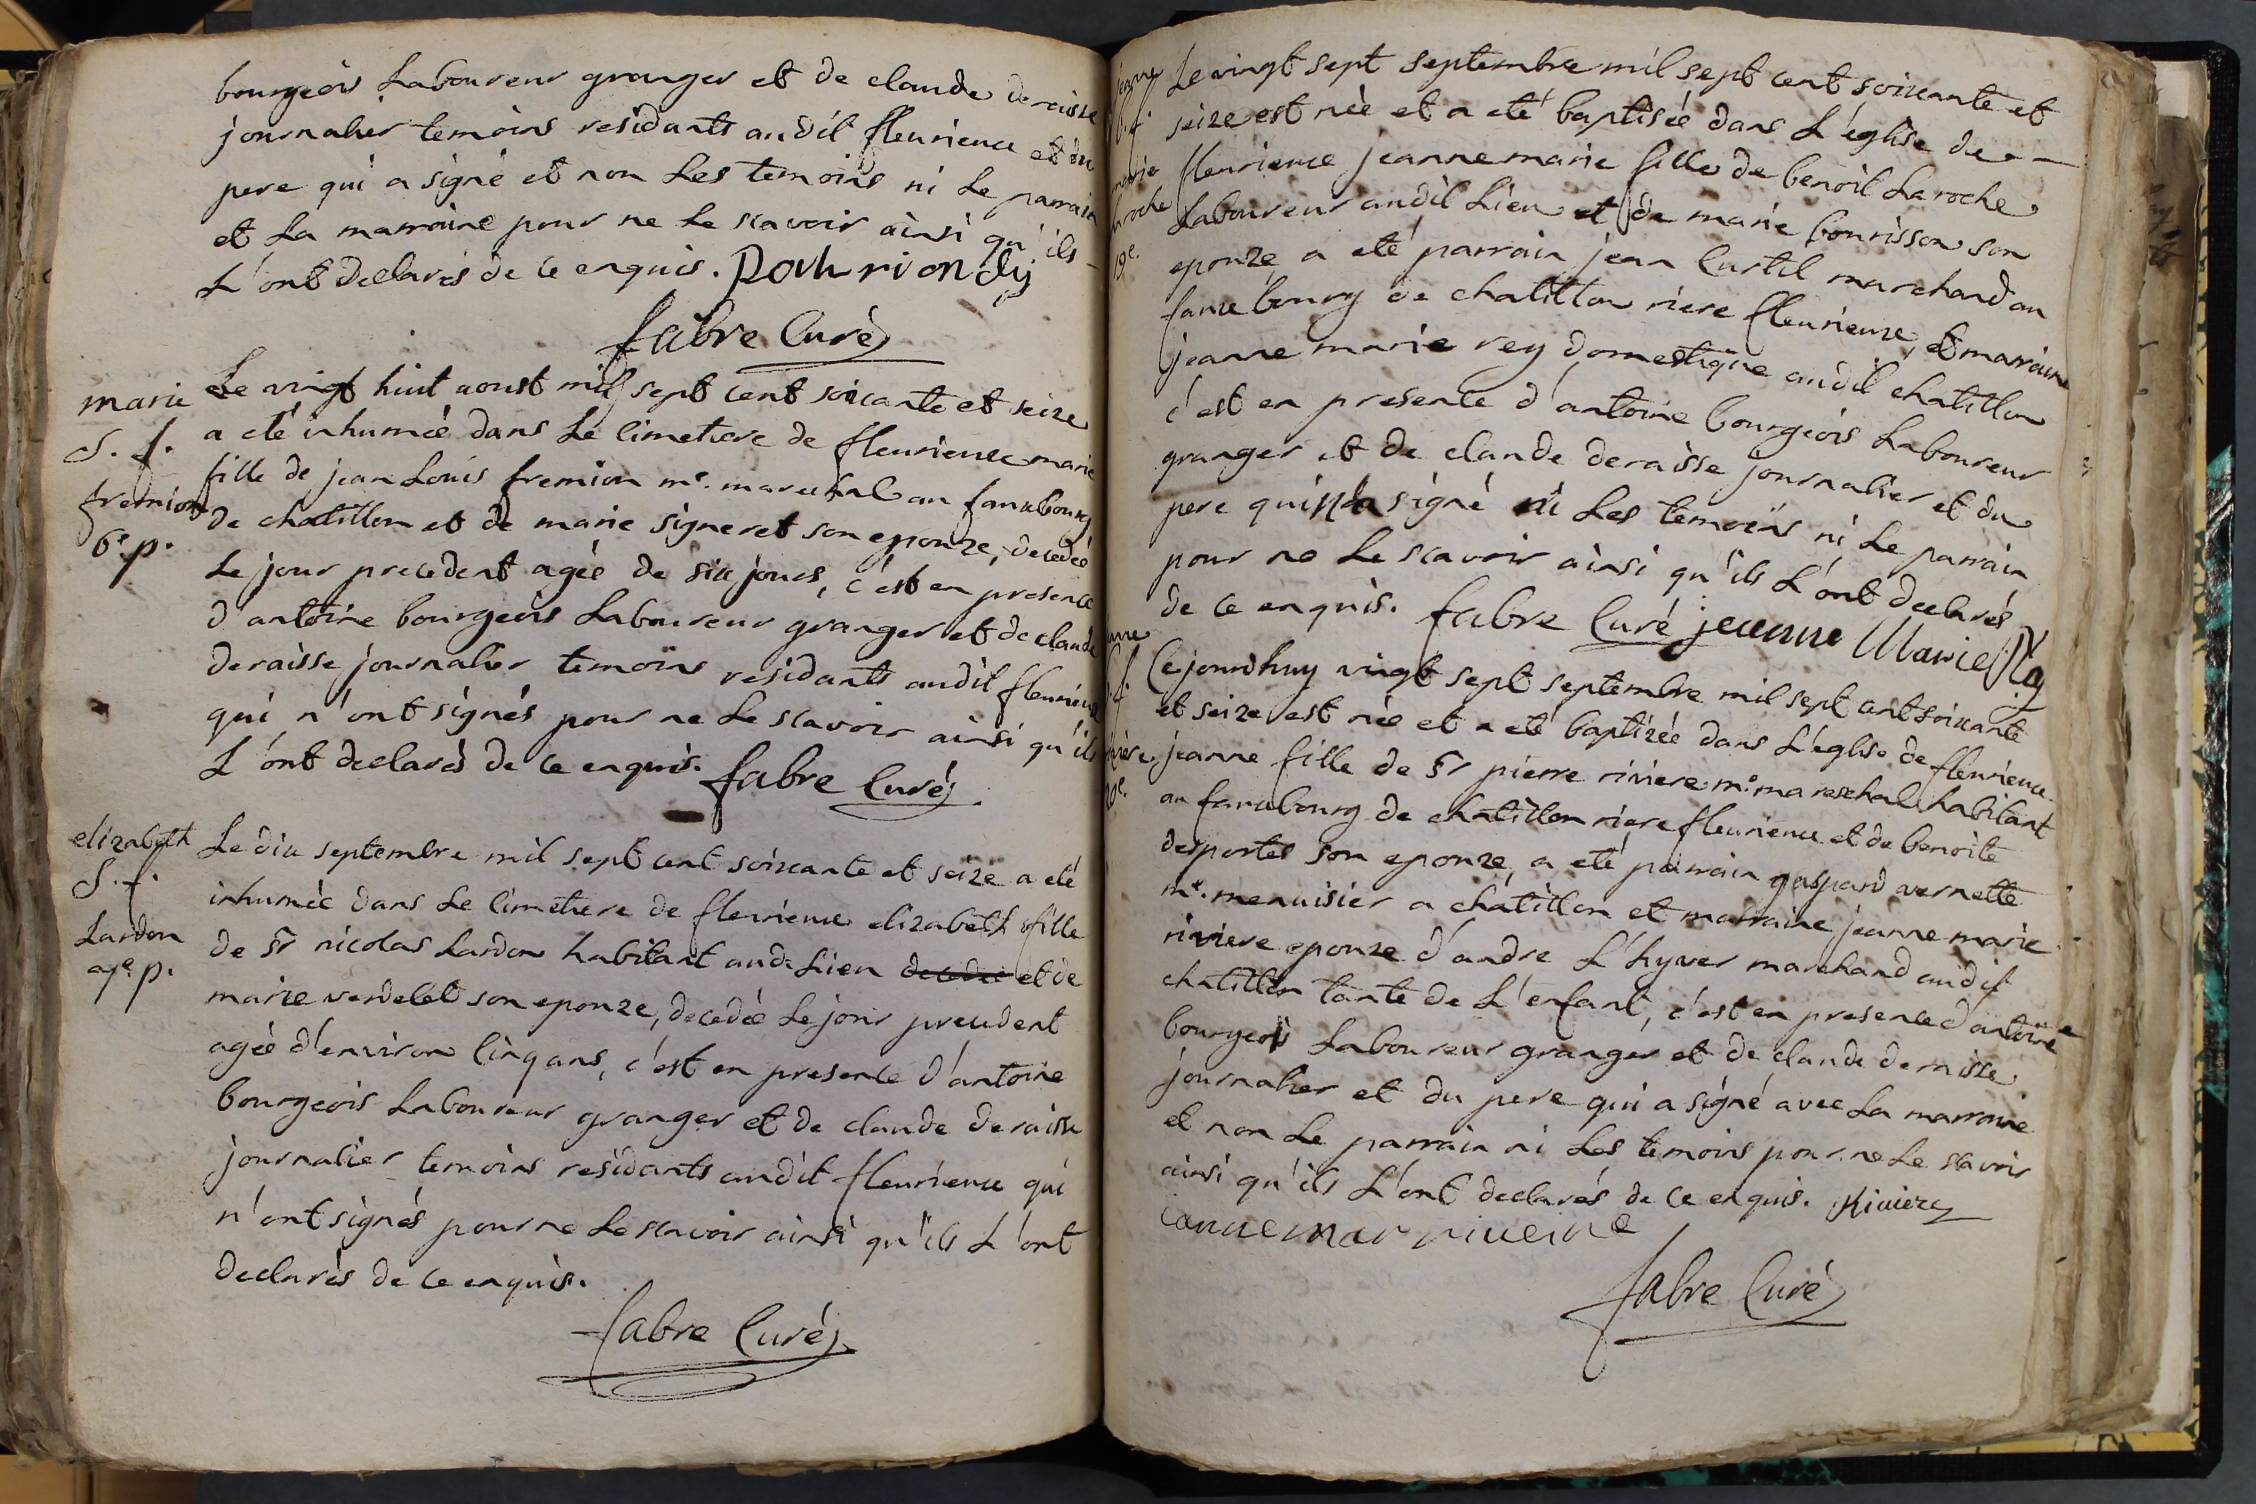 bourgeois Laboureur granger et de claude deraisse
journalier temoins residants audit fleurieux et du
pere qui a signé et non Les temoins ni Le parrain
et La marraine pour ne Le scavoir ainsi qu'ils
L'ont declarés de ce enquis.
fabre Curé
marie
S. f.
fremion
6e. p.
Le vingt huit aoust mil sept cent soixante et seize
a eté inhumée dans Le Cimetiere de fleurieux marie
fille de jean Louis fremion me. marechal au fauxbourg
de chatillon et de marie signeret son epouze, decedée
Le jour precedent agée de six jours, c'est en presence
d'antoine bourgeois Laboureur granger et de claude
deraisse journalier temoins residants audit fleurieux
qui n'ont signés pour ne Le scavoir ainsi qu'ils
L'ont declarés de ce enquis. fabre Curé
elizabeth
S. f.
Lardon
7e. p.
Le dix septembre mil sept cent soixante et seize a eté
inhumée dans Le Cimetiere de fleurieux elizabeth fille
de Sr nicolas Lardon habitant aud. Lieu decedée et de
marie verdelet son epouze, decedée Le jour precedent
agée d'environ Cinq ans, c'est en presence d'antoine
bourgeois Laboureur granger et de claude deraisse
journalier temoins residants audit fleurieux qui
n'ont signés pour ne Le scavoir ainsi qu'ils L'ont
declarés de ce enquis.
fabre Curé
jeanne
b. f.
marie
Laroche
19e.
Le vingt sept septembre mil sept cent soixante et
seize est née et a eté baptisée dans L'église de
fleurieux jeanne marie fille de benoit Laroche
Laboureur audit Lieu et de marie bourisson son
epouze, a eté parrain jean Curtil marchand au
fauxbourg de chatillon riere fleurieux, et marraine
jeanne marie rey domestique audit chatillon
c'est en presence d'antoine bourgeois Laboureur
granger et de claude deraisse journalier et du
pere qui n'a signé ni Les temoins ni Le parrain
pour ne Le scavoir ainsi qu'ils L'ont declarés
de ce enquis. fabre Curé jeanne Marie Rey
riviere
20e.
Cejourdhuy vingt sept septembre mil sept cent soixante
et seize est née et a eté baptizée dans L'église de fleurieux
jeanne fille de Sr pierre riviere me. mareschal habitant
au fauxbourg de chatillon riere fleurieux et de benoite
desportes son epouze, a eté parrain gaspard vernette
me. menuisier a chatillon et marraine jeanne marie
riviere epouze d'andre L'hyver marchand audit
chatillon tante de L'enfant, c'est en presence d'antoine
bourgeois Laboureur granger et de claude deraisse
journalier et du pere qui a signé avec La marraine
et non Le parrain ni Les temoins pour ne Le scavoir
ainsi qu'ils L'ont declarés de ce enquis. Riviere
fabre Curé